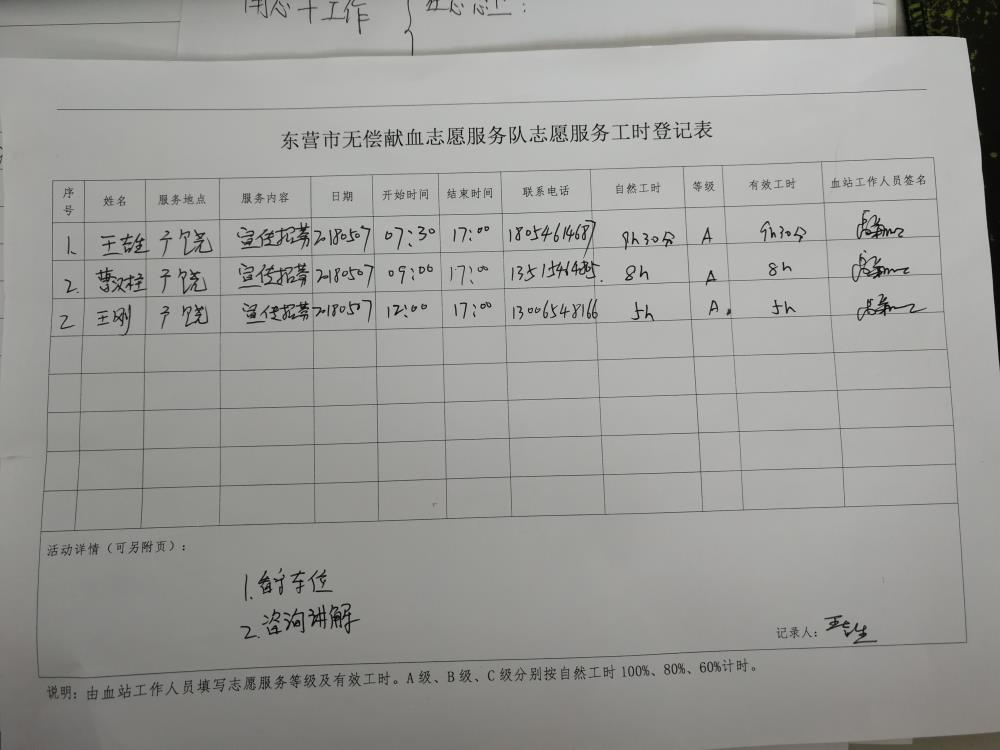 东营市无偿献血志愿服务队志愿服务工时登记表
序号 姓名 服务地点 服务内容 日期 开始时间 结束时间 联系电话 自然工时 等级 有效工时 血站工作人员签名
1. 广饶 宣传招募 20180507 07:30 17:00 18054614687 9h30分 A 9h30分
2. 曹汉柱 广饶 宣传招募 20180507 09:00 17:00 8h A 8h
2 王刚 广饶 宣传招募 20180507 12:00 17:00 13006548166 5h A. 5h
活动详情（可另附页）：
1. 车位
2. 咨询讲解
记录人：
说明：由血站工作人员填写志愿服务等级及有效工时。A级、B级、C级分别按自然工时100%、80%、60%计时。